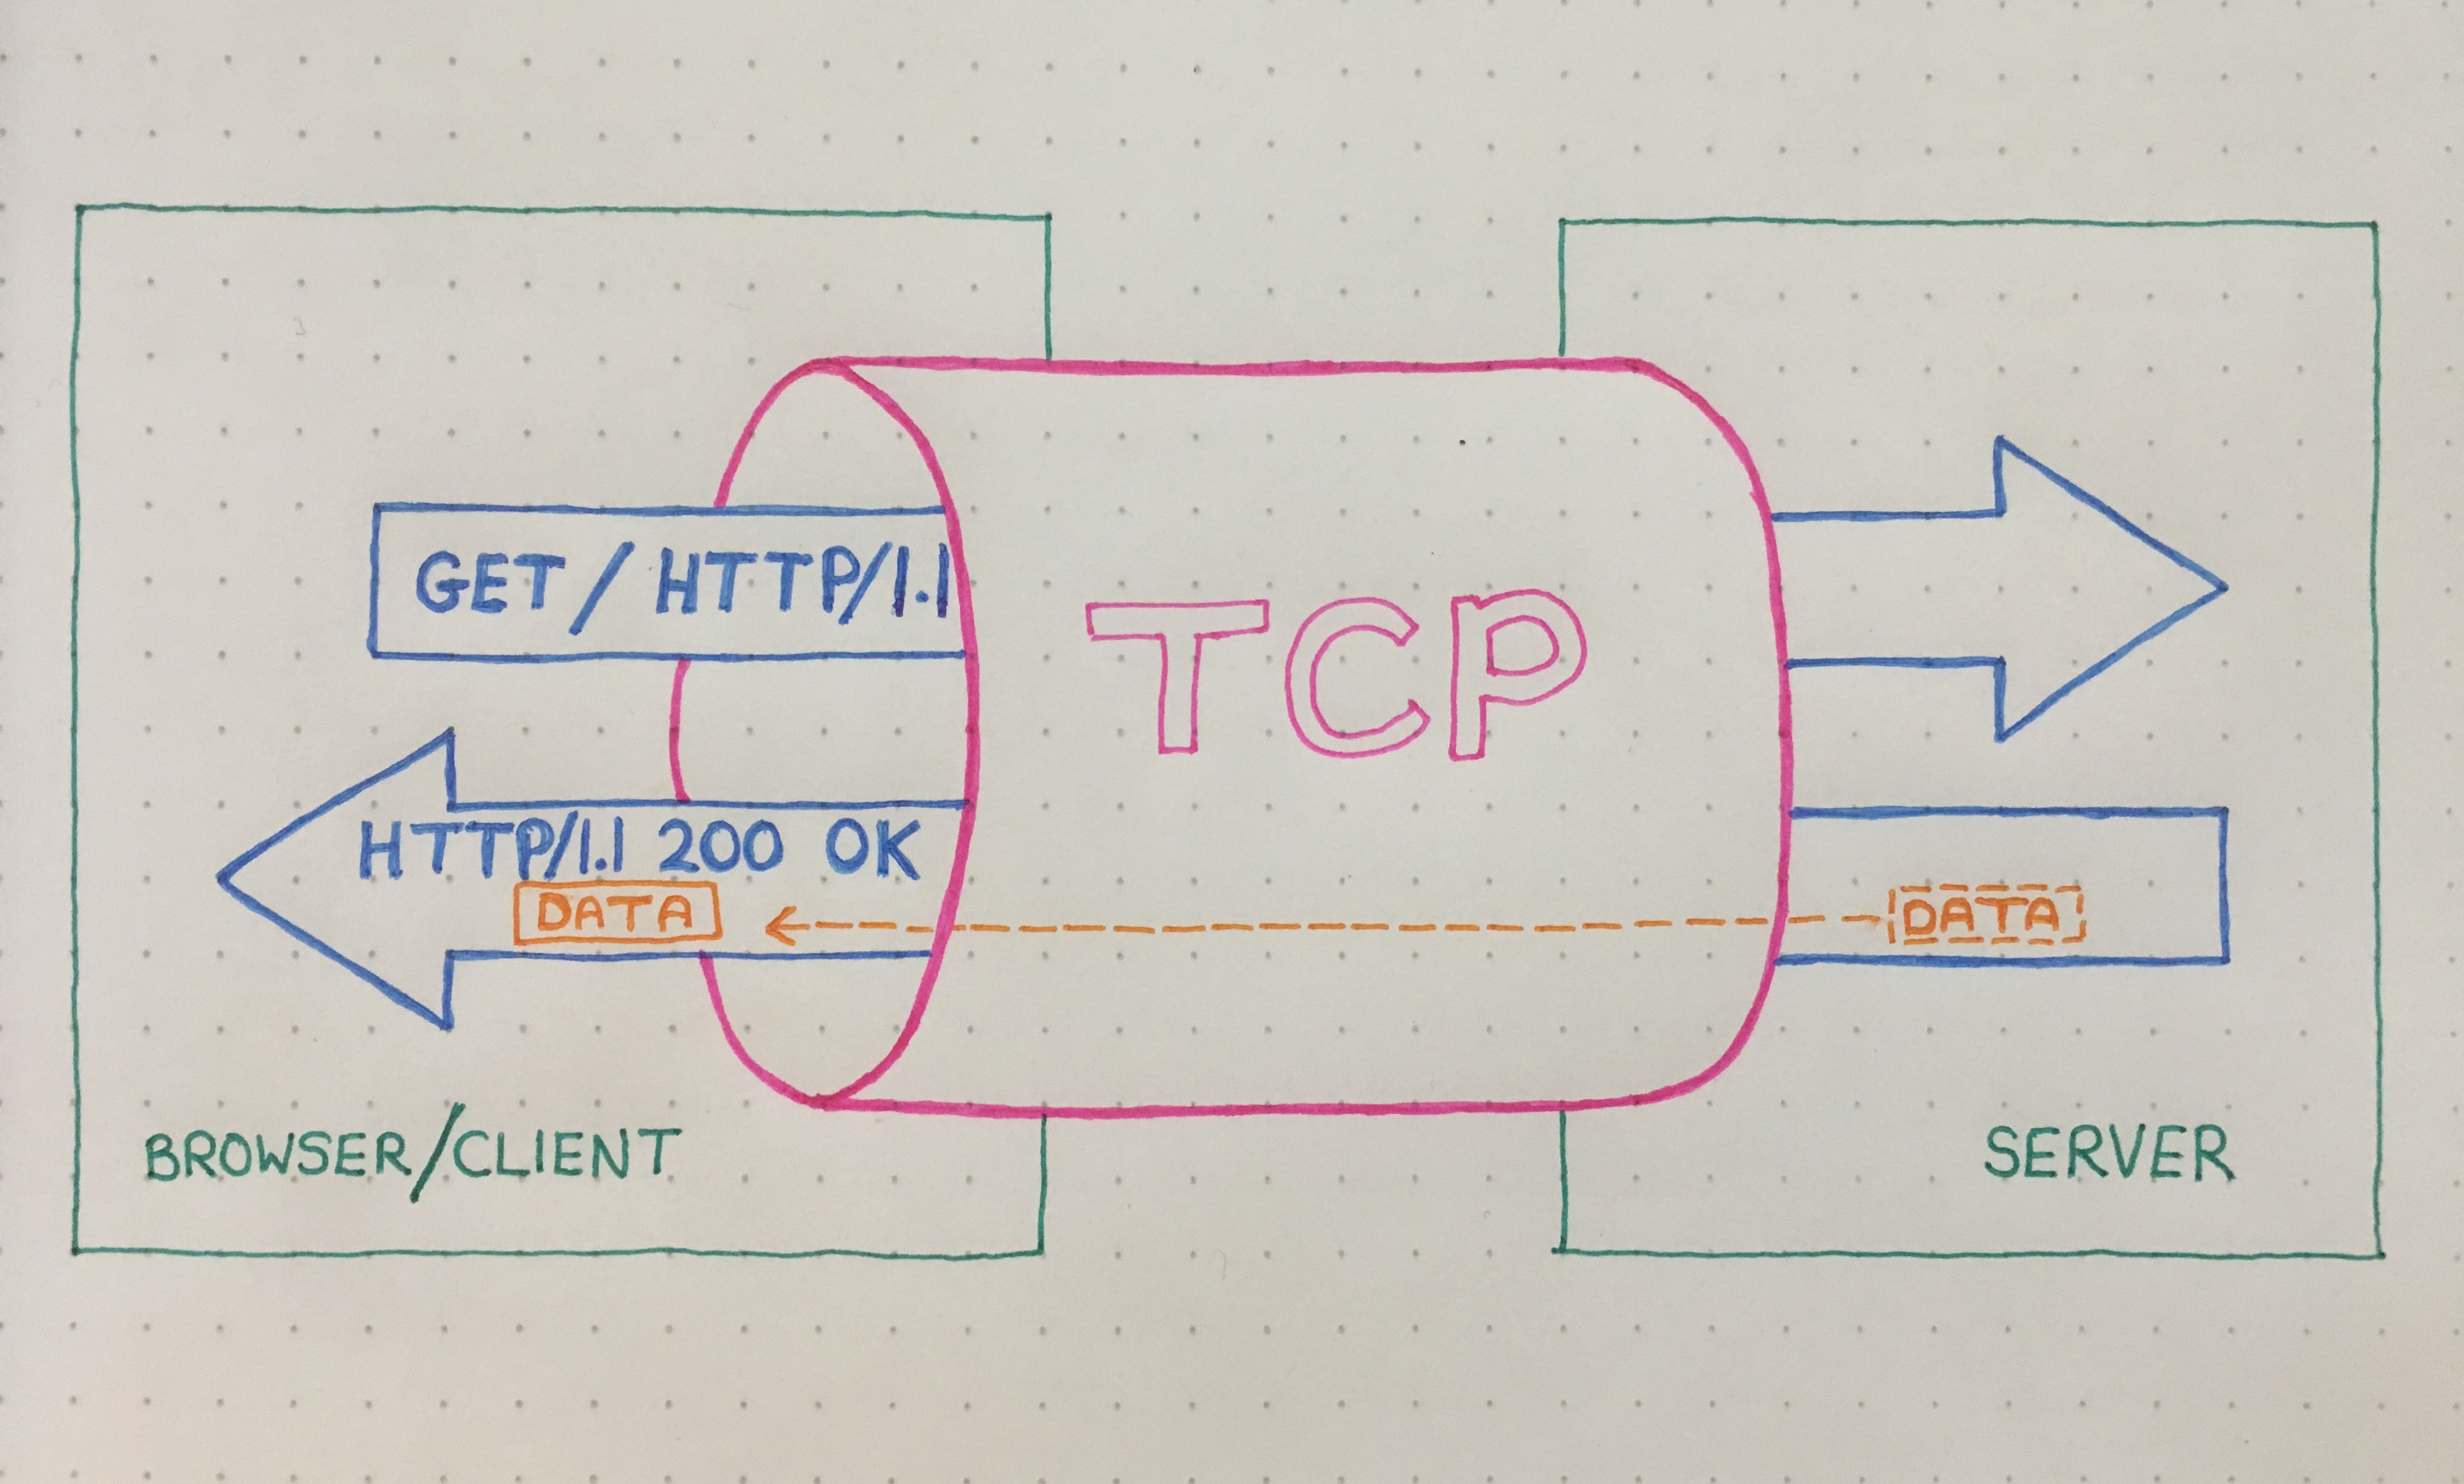 GET / HTTP/1.1
TCP
HTTP/1.1 200 OK
DATA
DATA
BROWSER/CLIENT
SERVER